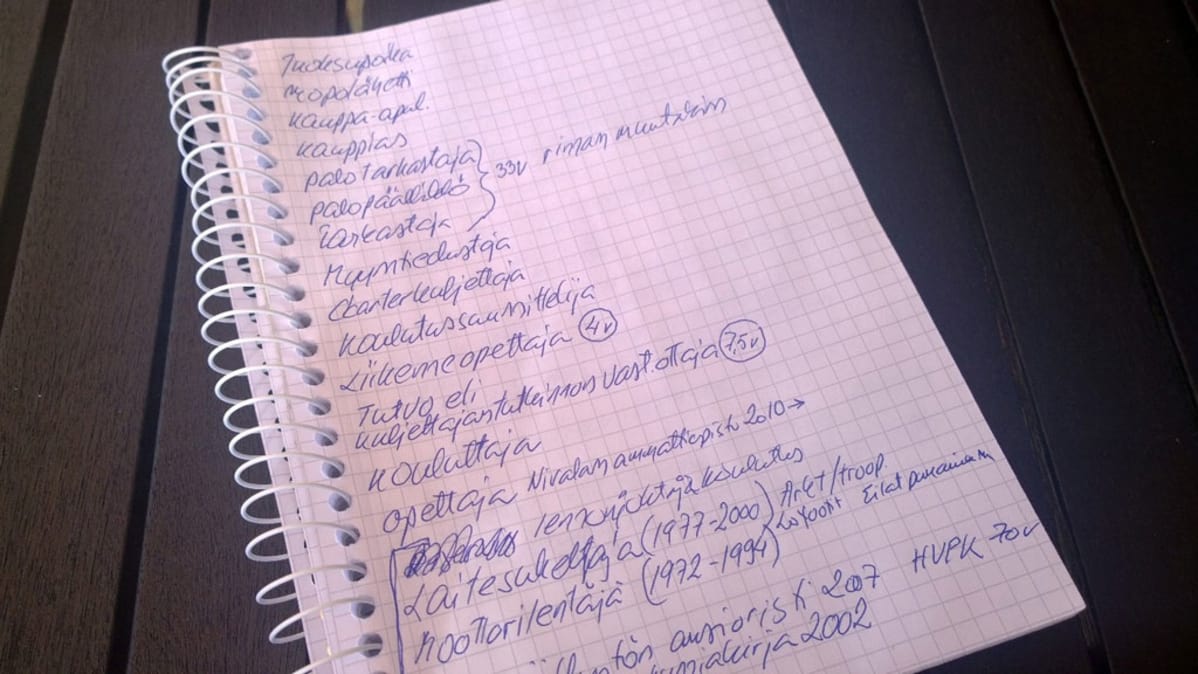 Juoksupoika
mopolähetti
kauppa-apul.
kauppias
palotarkastaja
palopäällikkö } 33v riman muutakin
Tarkastaja
Myyntiedustaja
Charterkuljettaja
koulutussuunnittelija
Liikenneopettaja 4v
Tutvo eli
kuljettajantutkinnon vast.ottaja 7,5v
kouluttaja
opettaja Nivalan ammattiopisto 2010→
lennonjohtaja koulutus
Laitesukeltaja (1977-2000) Arkt/troop.
Moottorilentäjä (1972-1994) Eilat punainen m
ansioristi 2007 HVPK 70v
kunniakirja 2002